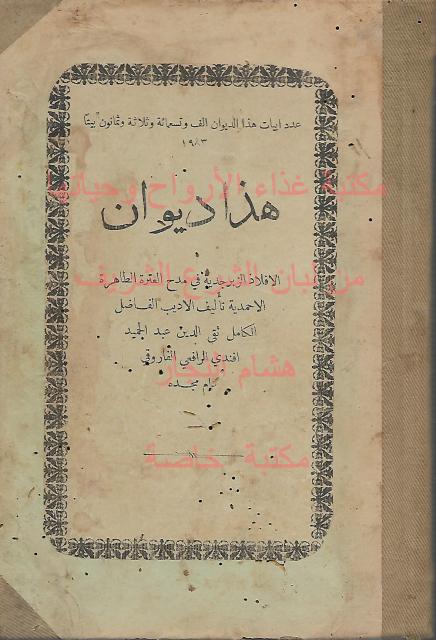 عدد ابيات هذا الديوان الف وتسعمائة وثلاثة وثمانون بيتا
١٩٨٣
مكتبة غذاء الأرواح وحياتها
هذا ديوان
من لبان الشرع الشريف
الافلاذ الزبرجدية في مدح العترة الطاهرة
الاحمدية تأليف الاديب الفاضل
الكامل تقي الدين عبد الحميد
افندي الرافعي الفاروقي
هشام النجار
دام مجده
مكتبة خاصة